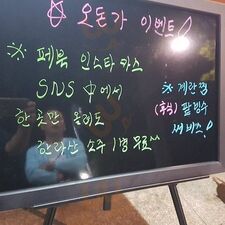 ☆ 오돈가 이벤트!
※ 페북 인스타 카스
SNS 中에서
한곳만 올려도
한라산 소주 1병 무료^^
※ 계란찜
(후식) 팥빙수
써비스!